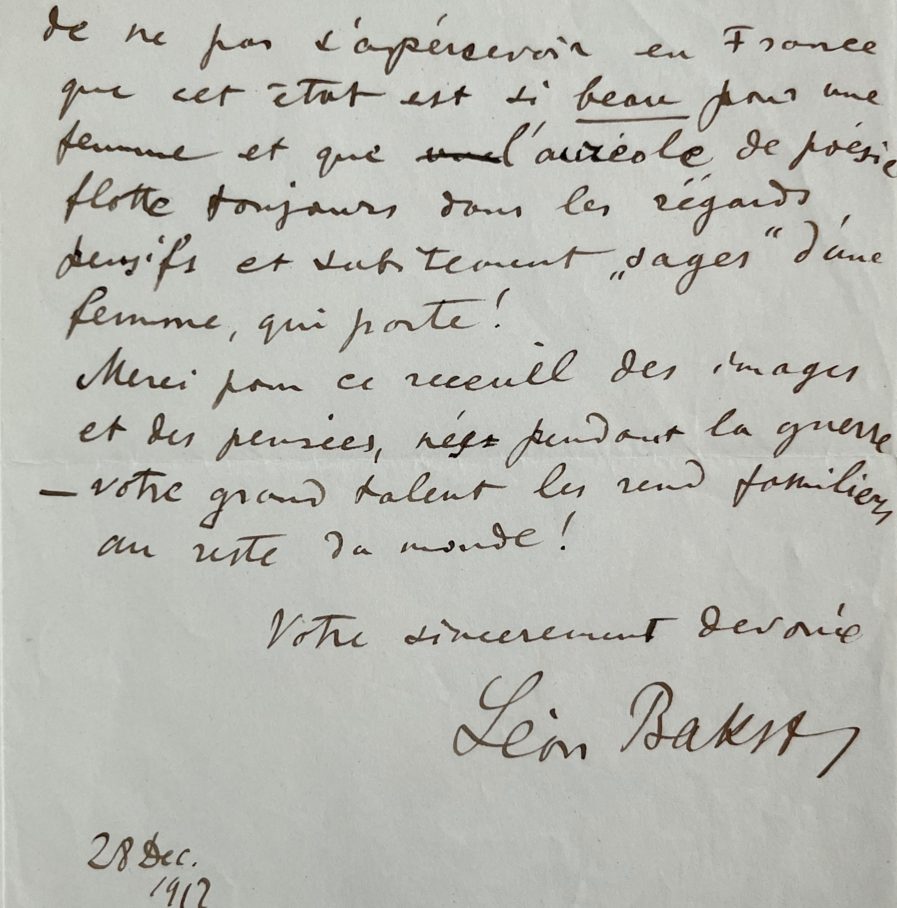 de ne pas s'apérsevoir en France
que cet état est si beau pour une
femme et que l'auréole de poésie
flotte toujours dans les régards
pensifs et subitement „sages“ d'une
femme, qui porte!
Merci pour ce receuill des images
et des pensées, nées pendant la guerre
— votre grand talent les rend familiers
au reste du monde!
Votre sincerement devouée
Léon Bakst
28 Dec.